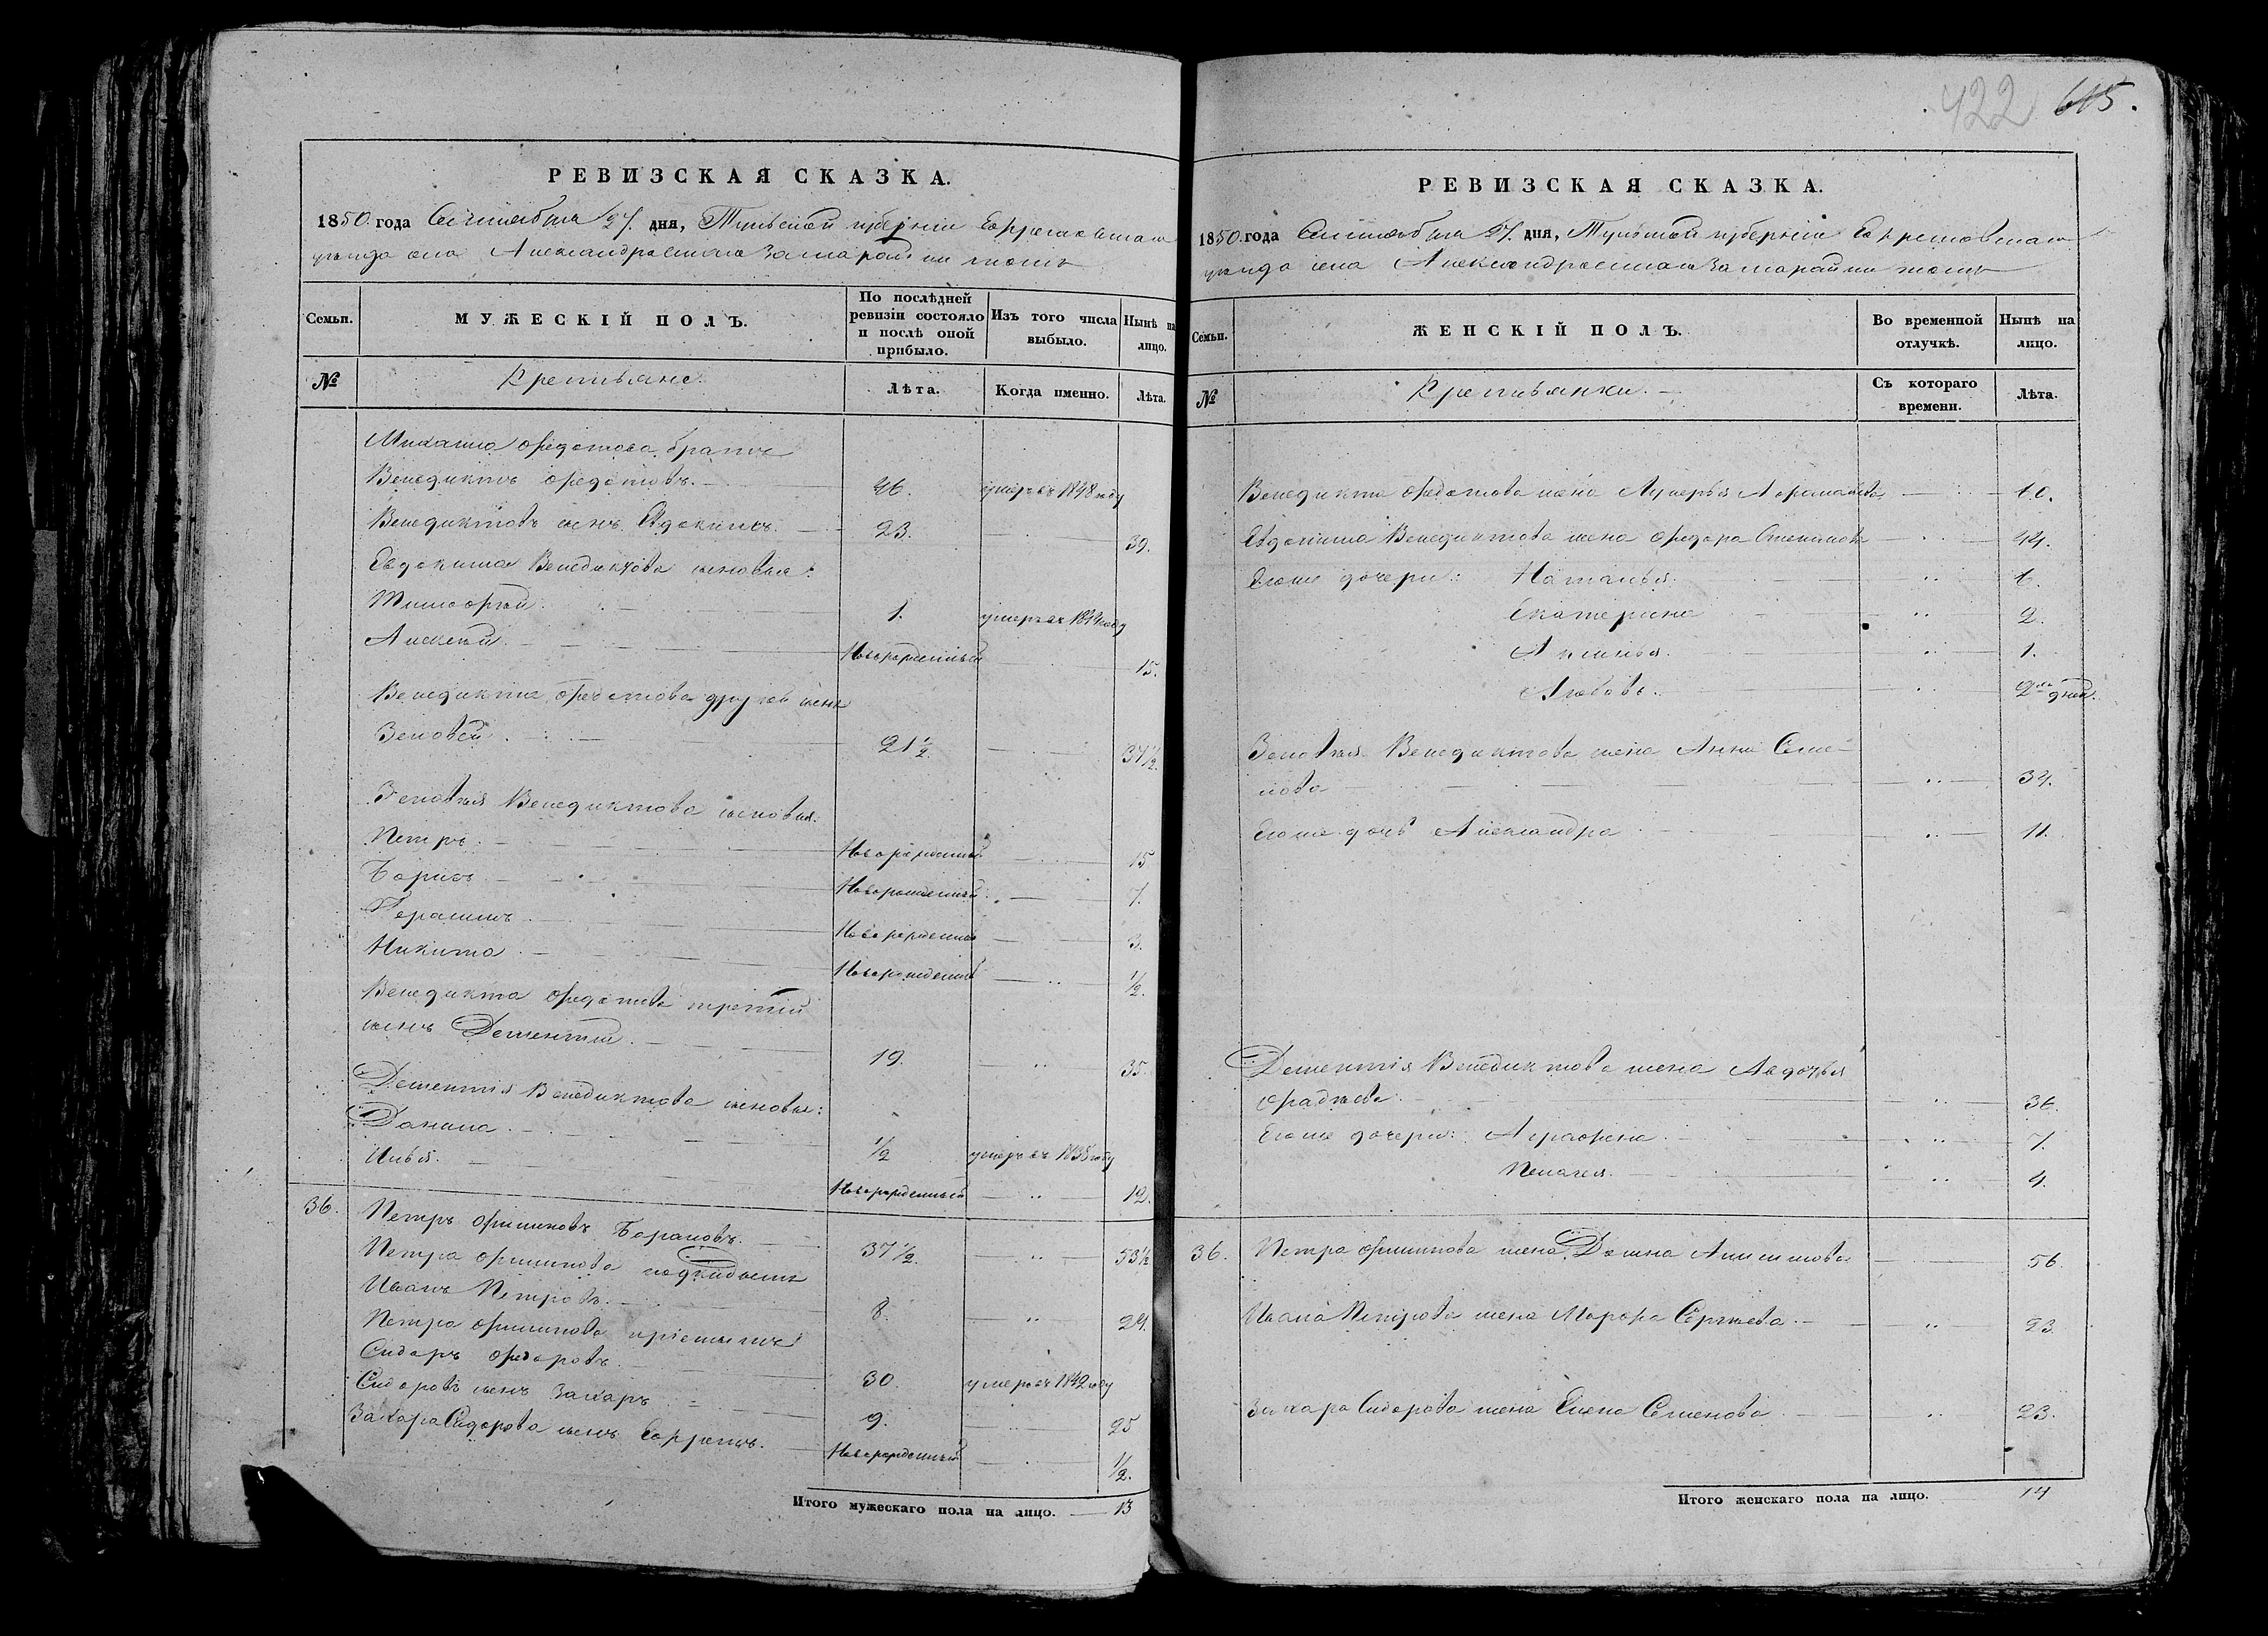 422 615.
РЕВИЗСКАЯ СКАЗКА.
1850. года Сентября 27. дня, Тульской губерніи Ефремовскаго
уѣзда села Александровскаго
Семьи.
МУЖЕСКІЙ ПОЛЪ.
По послѣдней ревизіи состояло и послѣ оной прибыло.
Изъ того числа выбыло.
Нынѣ на лицо.
№
Крестьяне.
Лѣта.
Когда именно.
Лѣта.
Михаила Федотова братъ
Венедиктъ Федотовъ. 46. умеръ въ 1848 году
Венедиктовъ сынъ Евдокимъ. 23. 39.
Евдокима Венедиктова сыновья:
Тимофей. 1. умеръ въ году
Алексей. Новорожденный 15.
Венедикта Федотова другой сынъ
Зеновей. 21 1/2. 37 1/2.
Зеновѣя Венедиктова сыновья:
Петръ. Новорожденный 15
Борисъ. Новорожденный 7.
Герасимъ. Новорожденный 3.
Никита. Новорожденный 1/2.
Венедикта Федотова третій
сынъ Дементій. 19. 35.
Дементія Венедиктова сыновья:
Данила. 1/2 умеръ въ 1835 году
Илья. Новорожденный 12.
36. Петръ Филиповъ Барановъ. 37 1/2. 53 1/2
Петра Филипова подкидышъ
Иванъ Петровъ. 8. 24.
Петра Филипова пріемышъ
Сидоръ Федоровъ. 30. умеръ въ 1842 году
Сидоровъ сынъ Захаръ 9. 25
Захара Сидорова сынъ Ефремъ. Новорожденный 1/2.
Итого мужескаго пола на лицо. 13
РЕВИЗСКАЯ СКАЗКА.
1850. года Сентября 27. дня, Тульской губерніи Ефремовскаго
уѣзда села Александровскаго
Семьи.
ЖЕНСКІЙ ПОЛЪ.
Во временной отлучкѣ.
Нынѣ на лицо.
№
Крестьянки.
Съ котораго времени.
Лѣта.
Венедикта Федотова жена Лукерья
Евдокима Венедиктова жена Федора 44.
Его же дочери: Наталья.
Екатерина 2.
Аксинья. 1.
Любовь. дней.
Зеновѣя Венедиктова жена Анна Семе-
нова 34.
Его же дочь Александра 11.
Дементія Венедиктова жена Авдотья
Фадѣева. 36.
Его же дочери: Аграфена. 7.
Пелагея. 4.
36. Петра Филипова жена Домна Анисимова 56.
Ивана Петрова жена Марфа Сергѣева. 23.
Захара Сидорова жена Елена Семенова 23.
Итого женскаго пола на лицо. 14